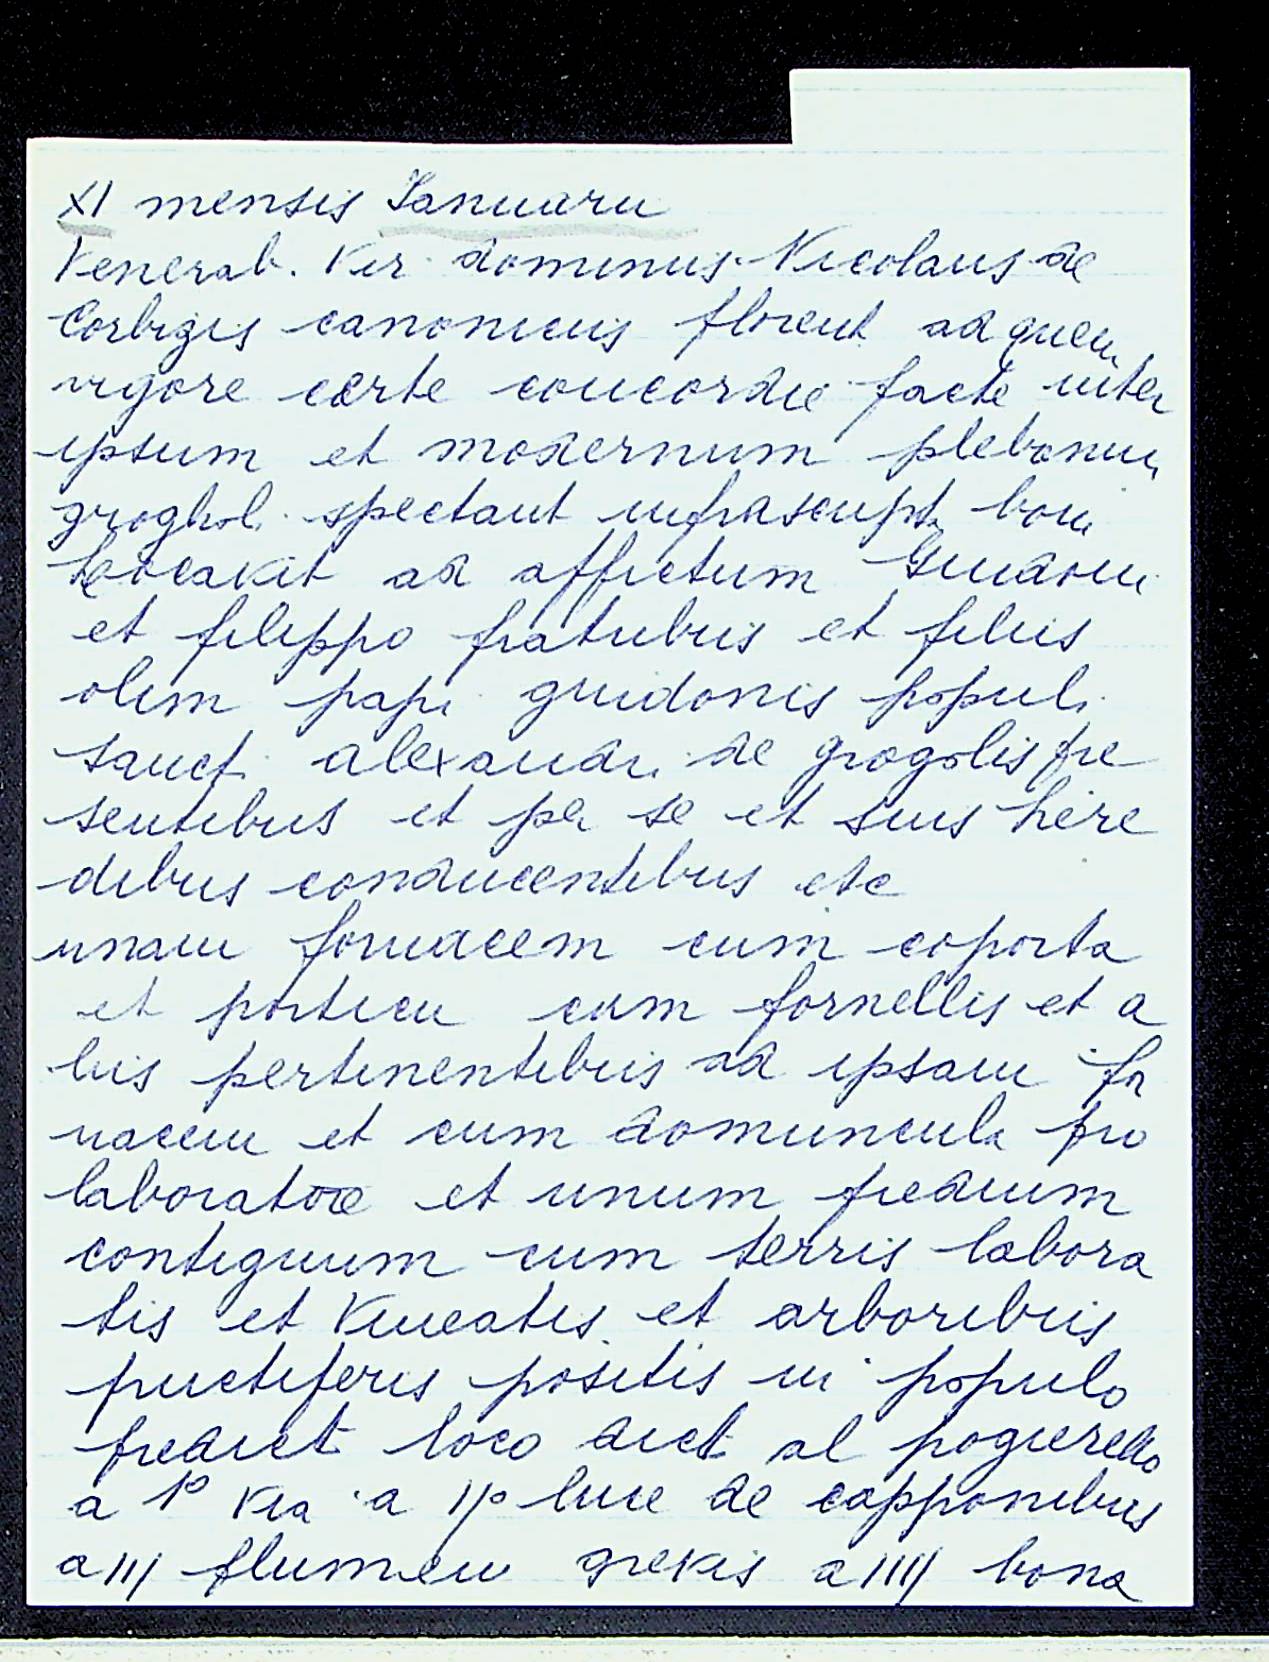 XI mensis Ianuarii
Venerab. Vir dominus Nicolaus de
Corbizis canonicus florent ad quem
vigore certe concordie facte inter
ipsum et modernum plebanum
groghol. spectant infrascript. bona
locavit ad affictum Guidoni
et filippo fratribus et filiis
olim papi guidonis populi
sancti alexandri de grogolis pre
sentibus et per se et suis here
dibus conducentibus etc
unam fornacem cum coporta
et porticu cum fornellis et a
liis pertinentibus ad ipsam for
nacem et cum domuncula pro
laboratore et unum predium
contiguum cum terris labora
tis et vineatis et arboribus
fructiferis positis in populo
predict loco dict al pogierello
a 1º via a IIº luce de capponibus
a III flumen grevis a IIII bona